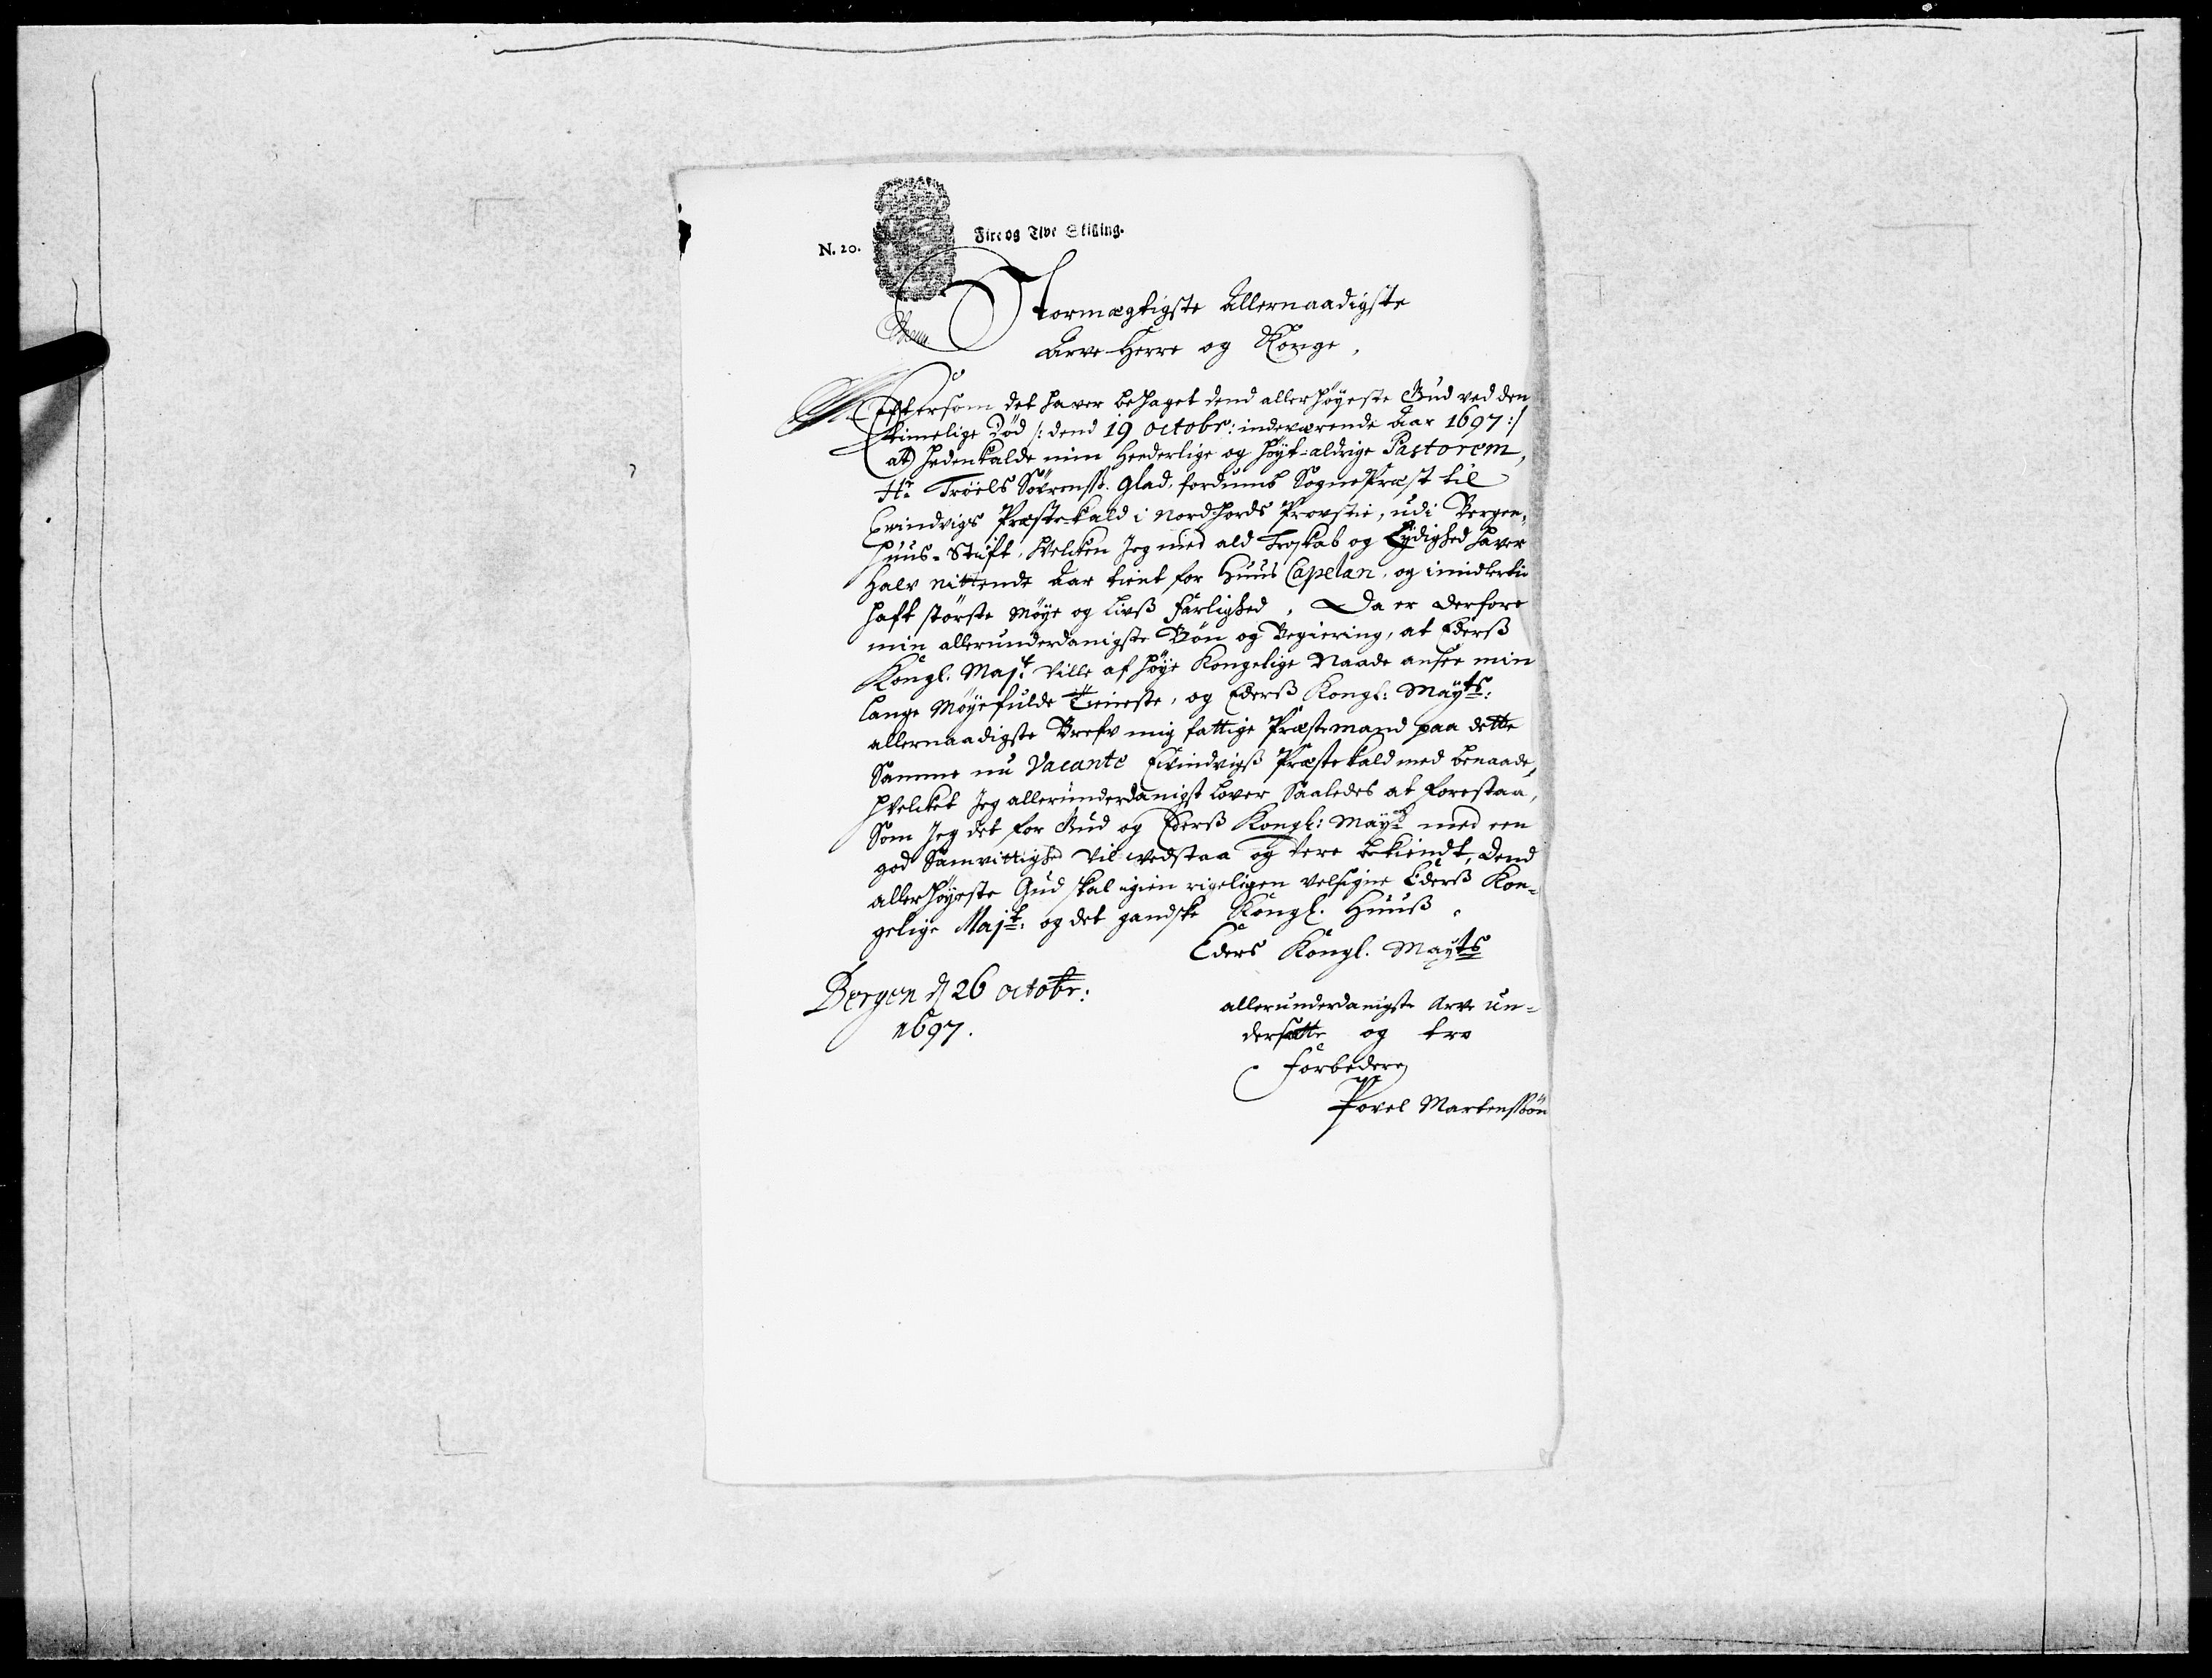 N. 20.
Fire og Tive Skilling.
Stormægtigste Allernaadigste
Arve-Herre og Konge,
Eftersom det haver behaget dend allerhöyeste Gud ved den
timelige Död /: dend 19 octobr: indeværende Aar 1697 :/
at hedenkalde min Hæderlige og höyt-aldrige Pastorem,
Hr Tröels Sövrenss. Glad, fordumb SognePræst til
Evindvigs Præste-kald i Nordhords Provstie, udi Bergen-
huus-Stift, hvelcken Jeg med ald Troskab og Lydighed haver
halv nittende Aar tient for Huus Capelan, og imidlertid
haft störste Möye og Livß farlighed, Da er derfore
min allerunderdanigste Bön og Begiering, at Ederß
Kongl. Majt Ville af höye Kongelige Naade ansee min
lange Möyefulde Tieneste, og Ederß Kongl: Mayts:
allernaadigste Brefv mig fattige Præstemand paa dette
Samme nu Vacante Evindvigß Præstekald med benaade,
hvelcket Jeg allerunderdanigst lover Saaledes at forestaa,
Som Jeg det for Gud og Ederß Kongl: Mayt med een
god Samvittighed vil vedstaa og være bekiendt, Dend
allerhöyeste Gud skal igien rigeligen velsigne Ederß Kon-
gelige Majt: og det gandske Kongl. Huuß.
Eders Kongl. Mayts
Bergen d 26 octobr:
1697.
allerunderdanigste Arve un-
dersatte og tro
forbedere
Povel Martenssön